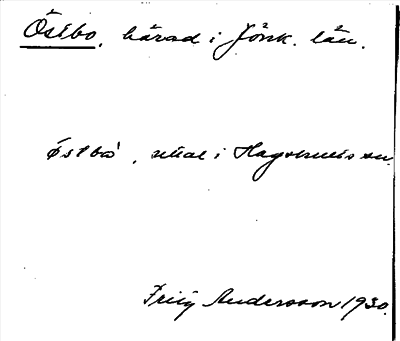 Östbo, härad i Jönk. län.
östbo, uttal i Hagshults sn.
Andersson 1930.